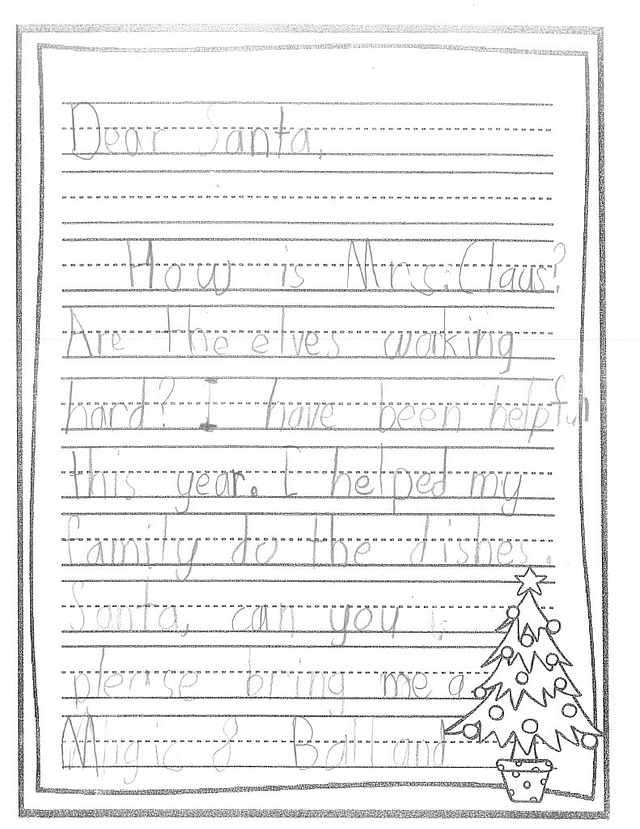 Dear Santa,
How is Mrs. Claus?
Are the elves working
hard? I have been helpful
this year. I helped my
family do the dishes.
Santa, can you
please bring me a
Magic 8 Ball and